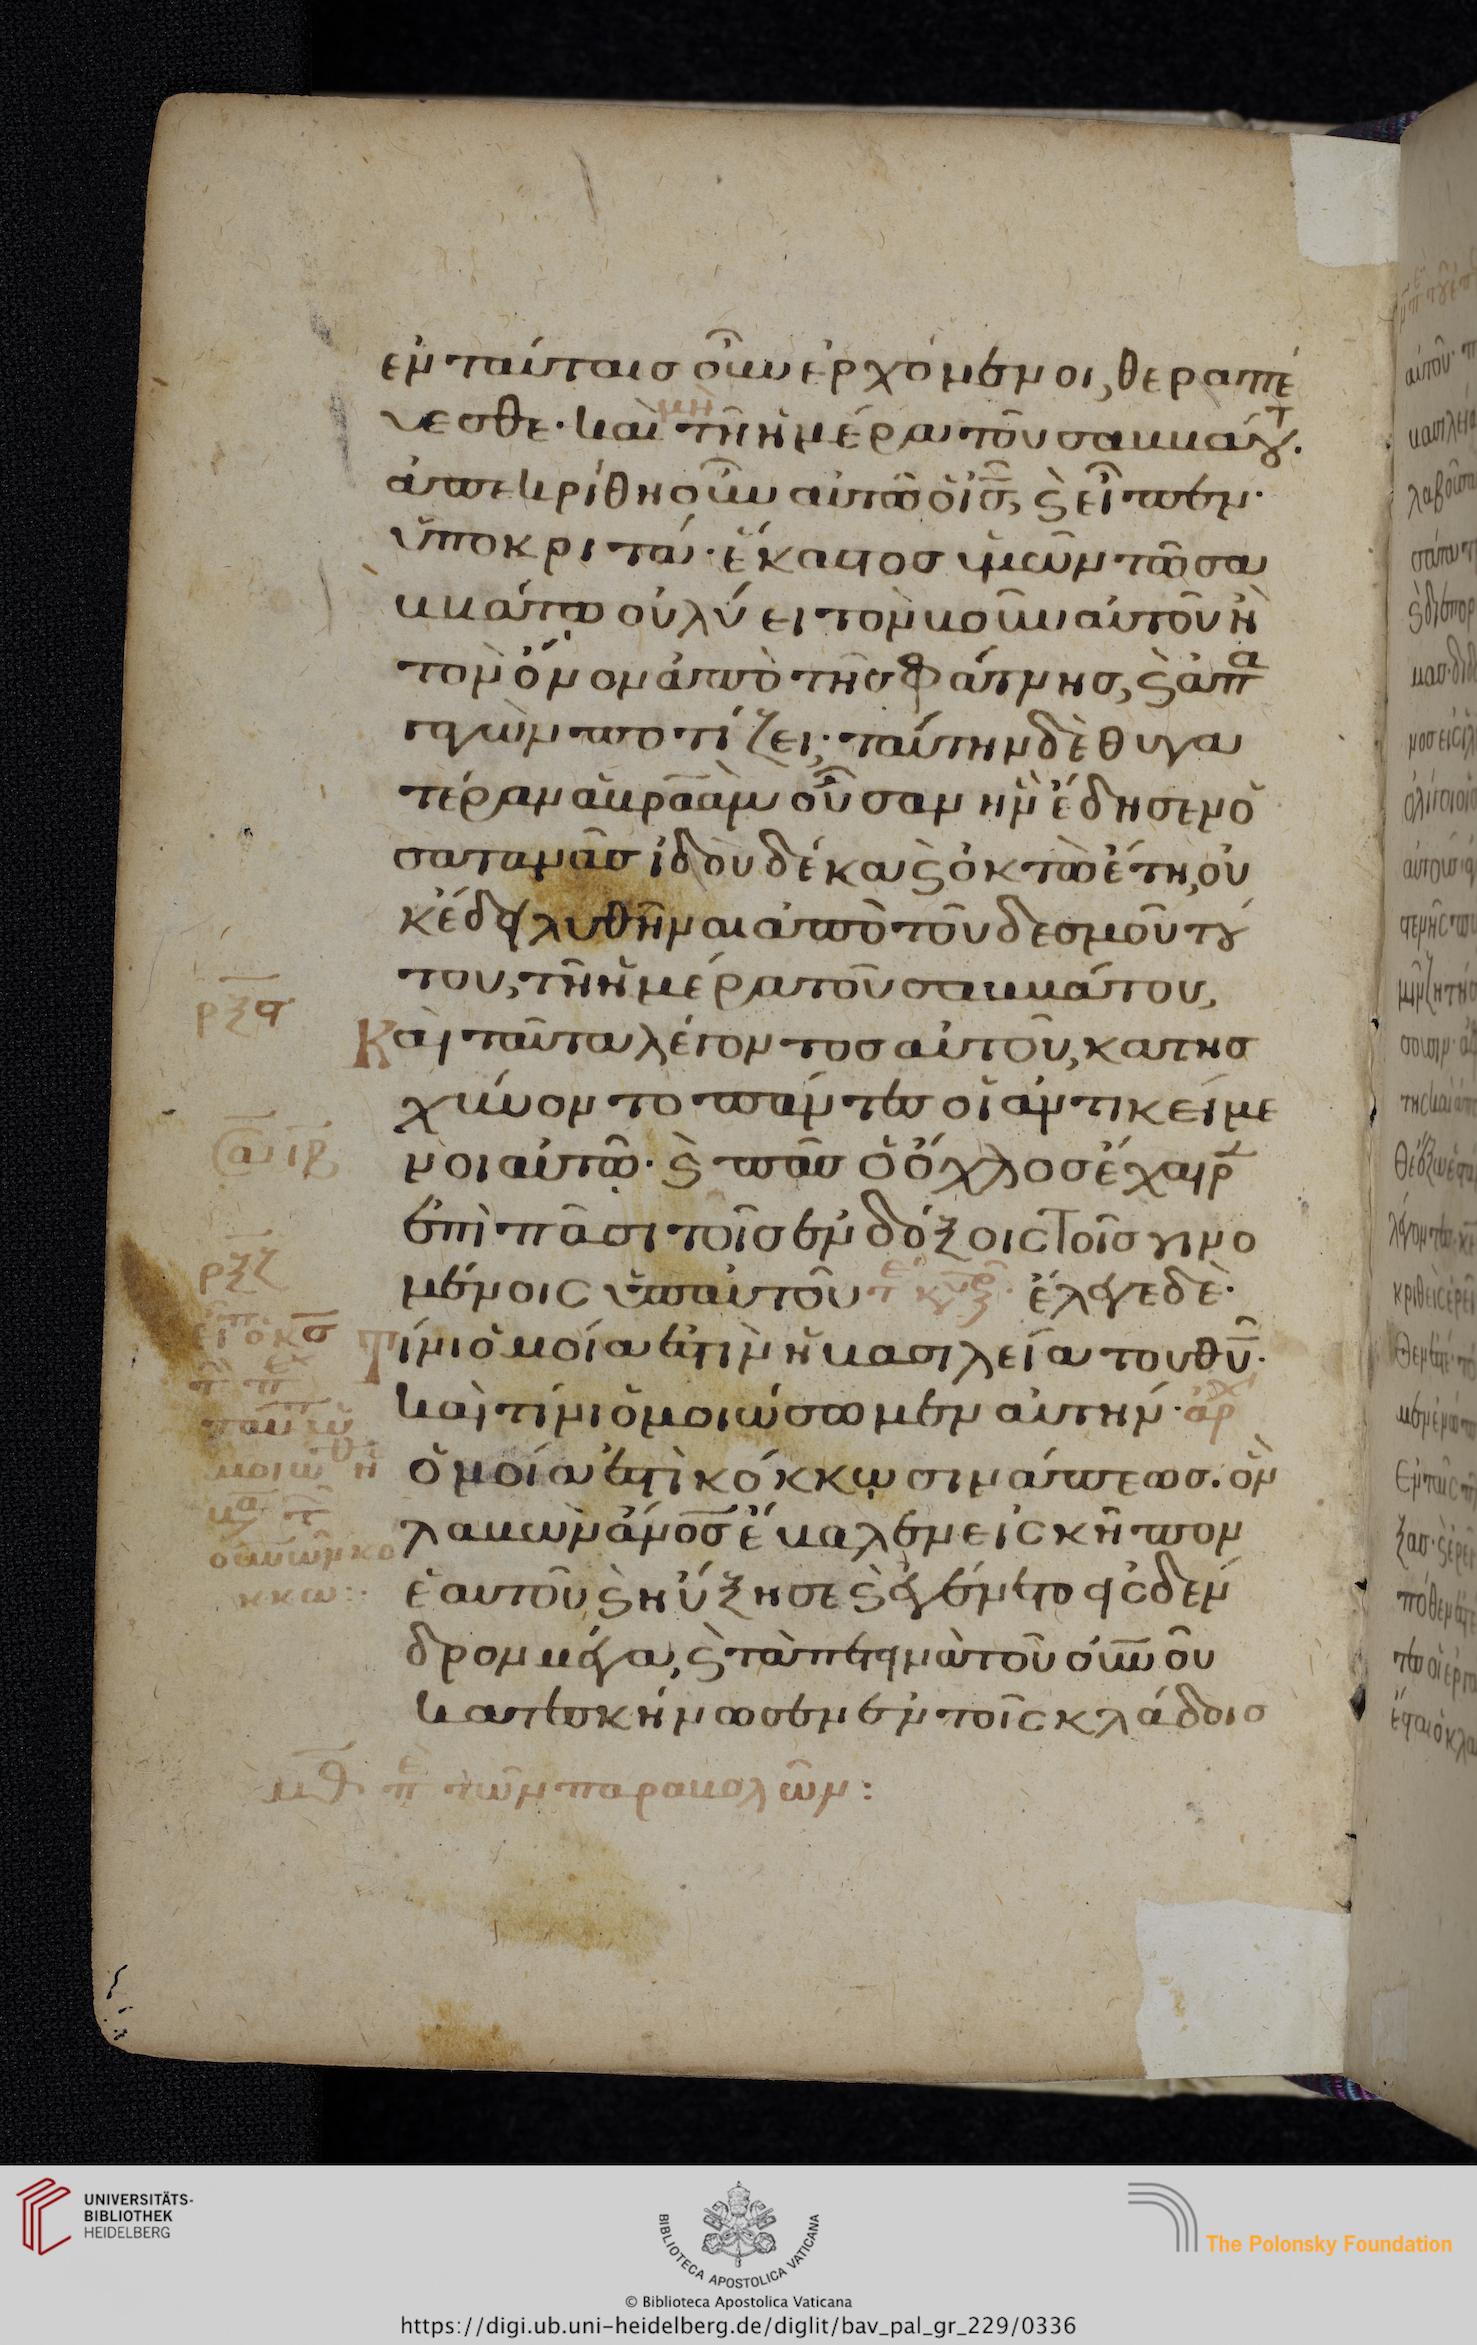 ἐν ταύταις οὖν ἐρχόμενοι, θεραπέ
υεσθε· καὶ μὴ τῆ ἡμέρα τοῦ σαββάτου.
ἀπεκρίθη οὖν αὐτῶ ὁ ις̅, ϗ εἶπεν·
ὑποκριτά· ἕκαστος ὑμῶν τῶ σα
ββάτω οὐ λύει τὸν βοῦν αὐτοῦ ἢ
τὸν ὄνον ἀπὸ τῆς φάτνης, ϗ ἀπα
γαγὼν ποτίζει; ταύτην δὲ θυγα
τέραν ἁβραὰμ οὖσαν ἣν ἔδησεν ὁ
σατανᾶς ἰδοὺ δέκα ϗ ὀκτὼ ἔτη, οὐ
κ ἔδει λυθῆναι ἀπὸ τοῦ δεσμοῦ τού
του, τῆ ἡμέρα τοῦ σαββάτου,
ρξϛ
Καὶ ταῦτα λέγοντος αὐτοῦ, κατησ
χύνοντο πάντες οἱ ἀντικείμε
νοι αὐτῶ· ϗ πᾶς ὁ ὄχλος ἔχαιρεν
ἐπὶ πᾶσι τοῖς ἐνδόξοις τοῖς γινο
μένοις ὑπ αὐτοῦ ἔλεγε δὲ·
ρξζ
Τίνι ὁμοία ἐστὶν ἡ βασιλεία του θυ̅·
καὶ τίνι ὁμοιώσωμεν αὐτήν· ἀρχ
ὁμοία ἐστὶ κόκκῳ σινάπεως. ὃν
λαβὼν ἄνος̅ ἔβαλεν εἰς κῆπον
ἑαυτοῦ ϗ ηὔξησε ϗ ἐγένετο εἰς δέν
δρον μέγα, ϗ τὰ πετεινὰ τοῦ οὐνοῦ
κατεσκήνωσεν ἐν τοῖς κλάδοις
μθ πε τῶν παραβολῶν:
UNIVERSITÄTS-
BIBLIOTHEK
HEIDELBERG
BIBLIOTECA APOSTOLICA VATICANA
The Polonsky Foundation
© Biblioteca Apostolica Vaticana
https://digi.ub.uni-heidelberg.de/diglit/bav_pal_gr_229/0336